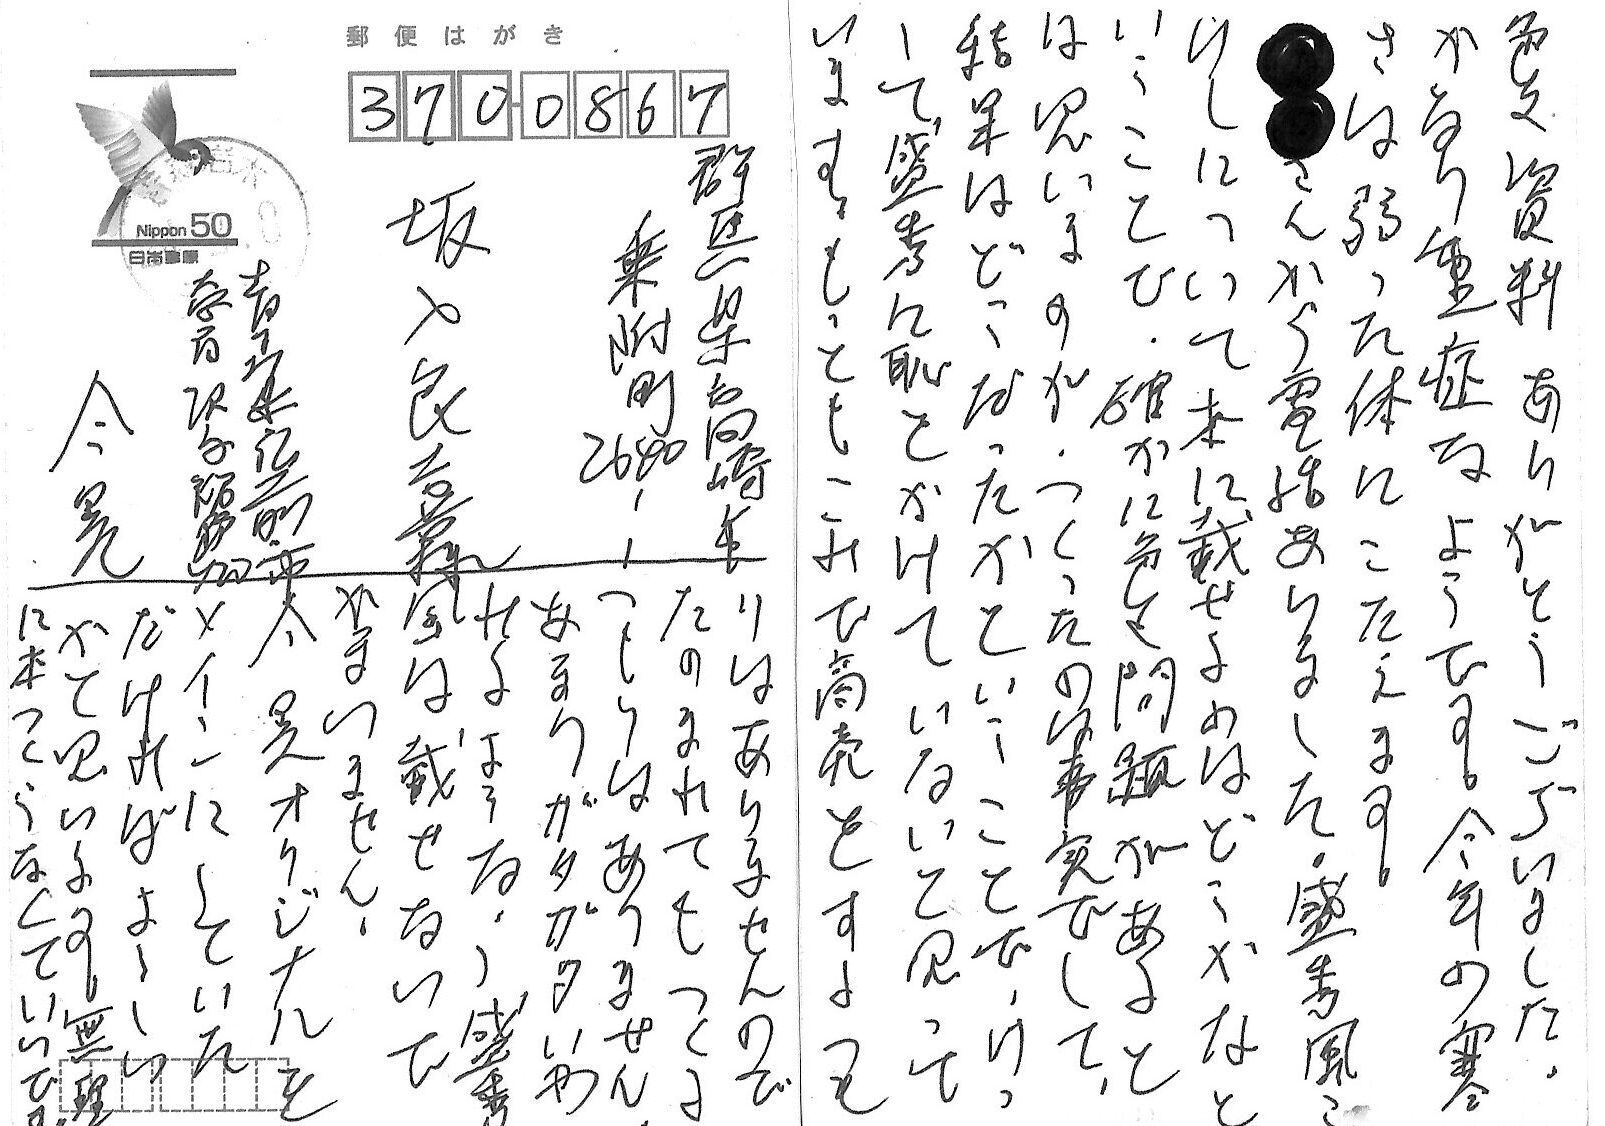 色々資料ありがとうございました。
かなり重症なようです。今年の寒
さは弱った体にこたえます。
さんから電話ありました。盛秀風こ
けしについて本に載せるのはどうかなと
いうことで、確かに色々問題があると
は思いますのが、つくったのは事実でして、
結果はどうなったかということで、けっ
して盛秀に恥をかけていないて思って
います。もっともこれで商売をするつも
郵便はがき
370-0867
Nippon 50
日本郵便
群馬県高崎市
乗附町
2680-1-1
坂入良喜様
今 晃
りはありませんので
たのまれてもつくる
つもりはありません。
あまりガタガタいわ
れるような、う盛秀
風は載せないで
かまいません。
今 晃オリジナルを
メインにしていた
だければよろしい
かて思います。無理
に本つくらなくていいです